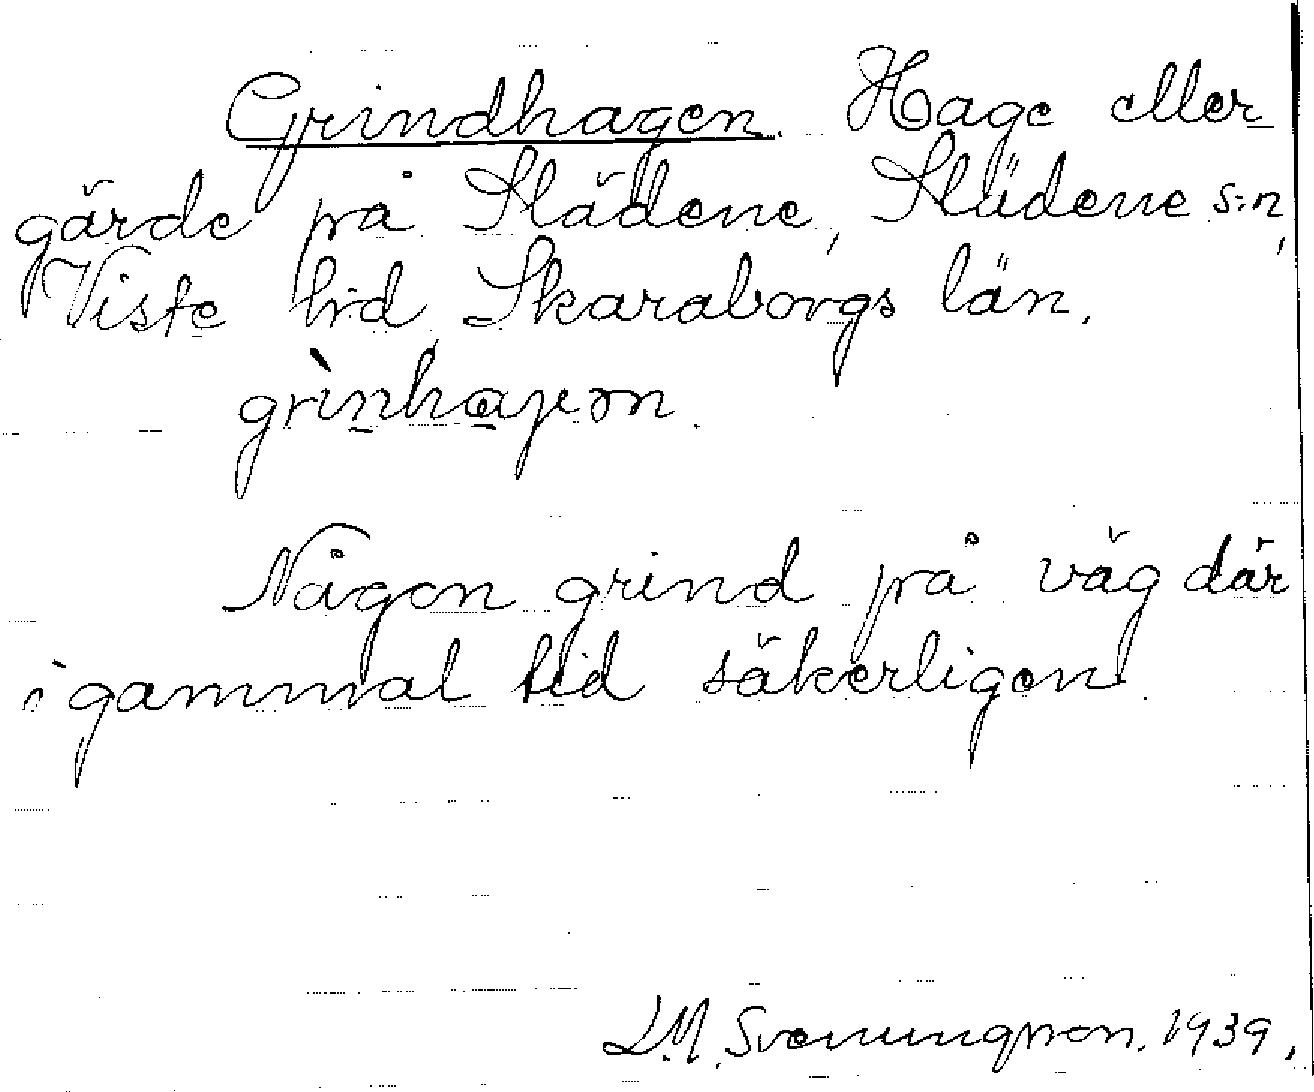 Grindhagen. Hage eller
gärde på Slädene, Slädene s:n,
Viste hd Skaraborgs län.
Någon grind på väg där
i gammal tid säkerligen.
L.M. Svenungsson. 1939.